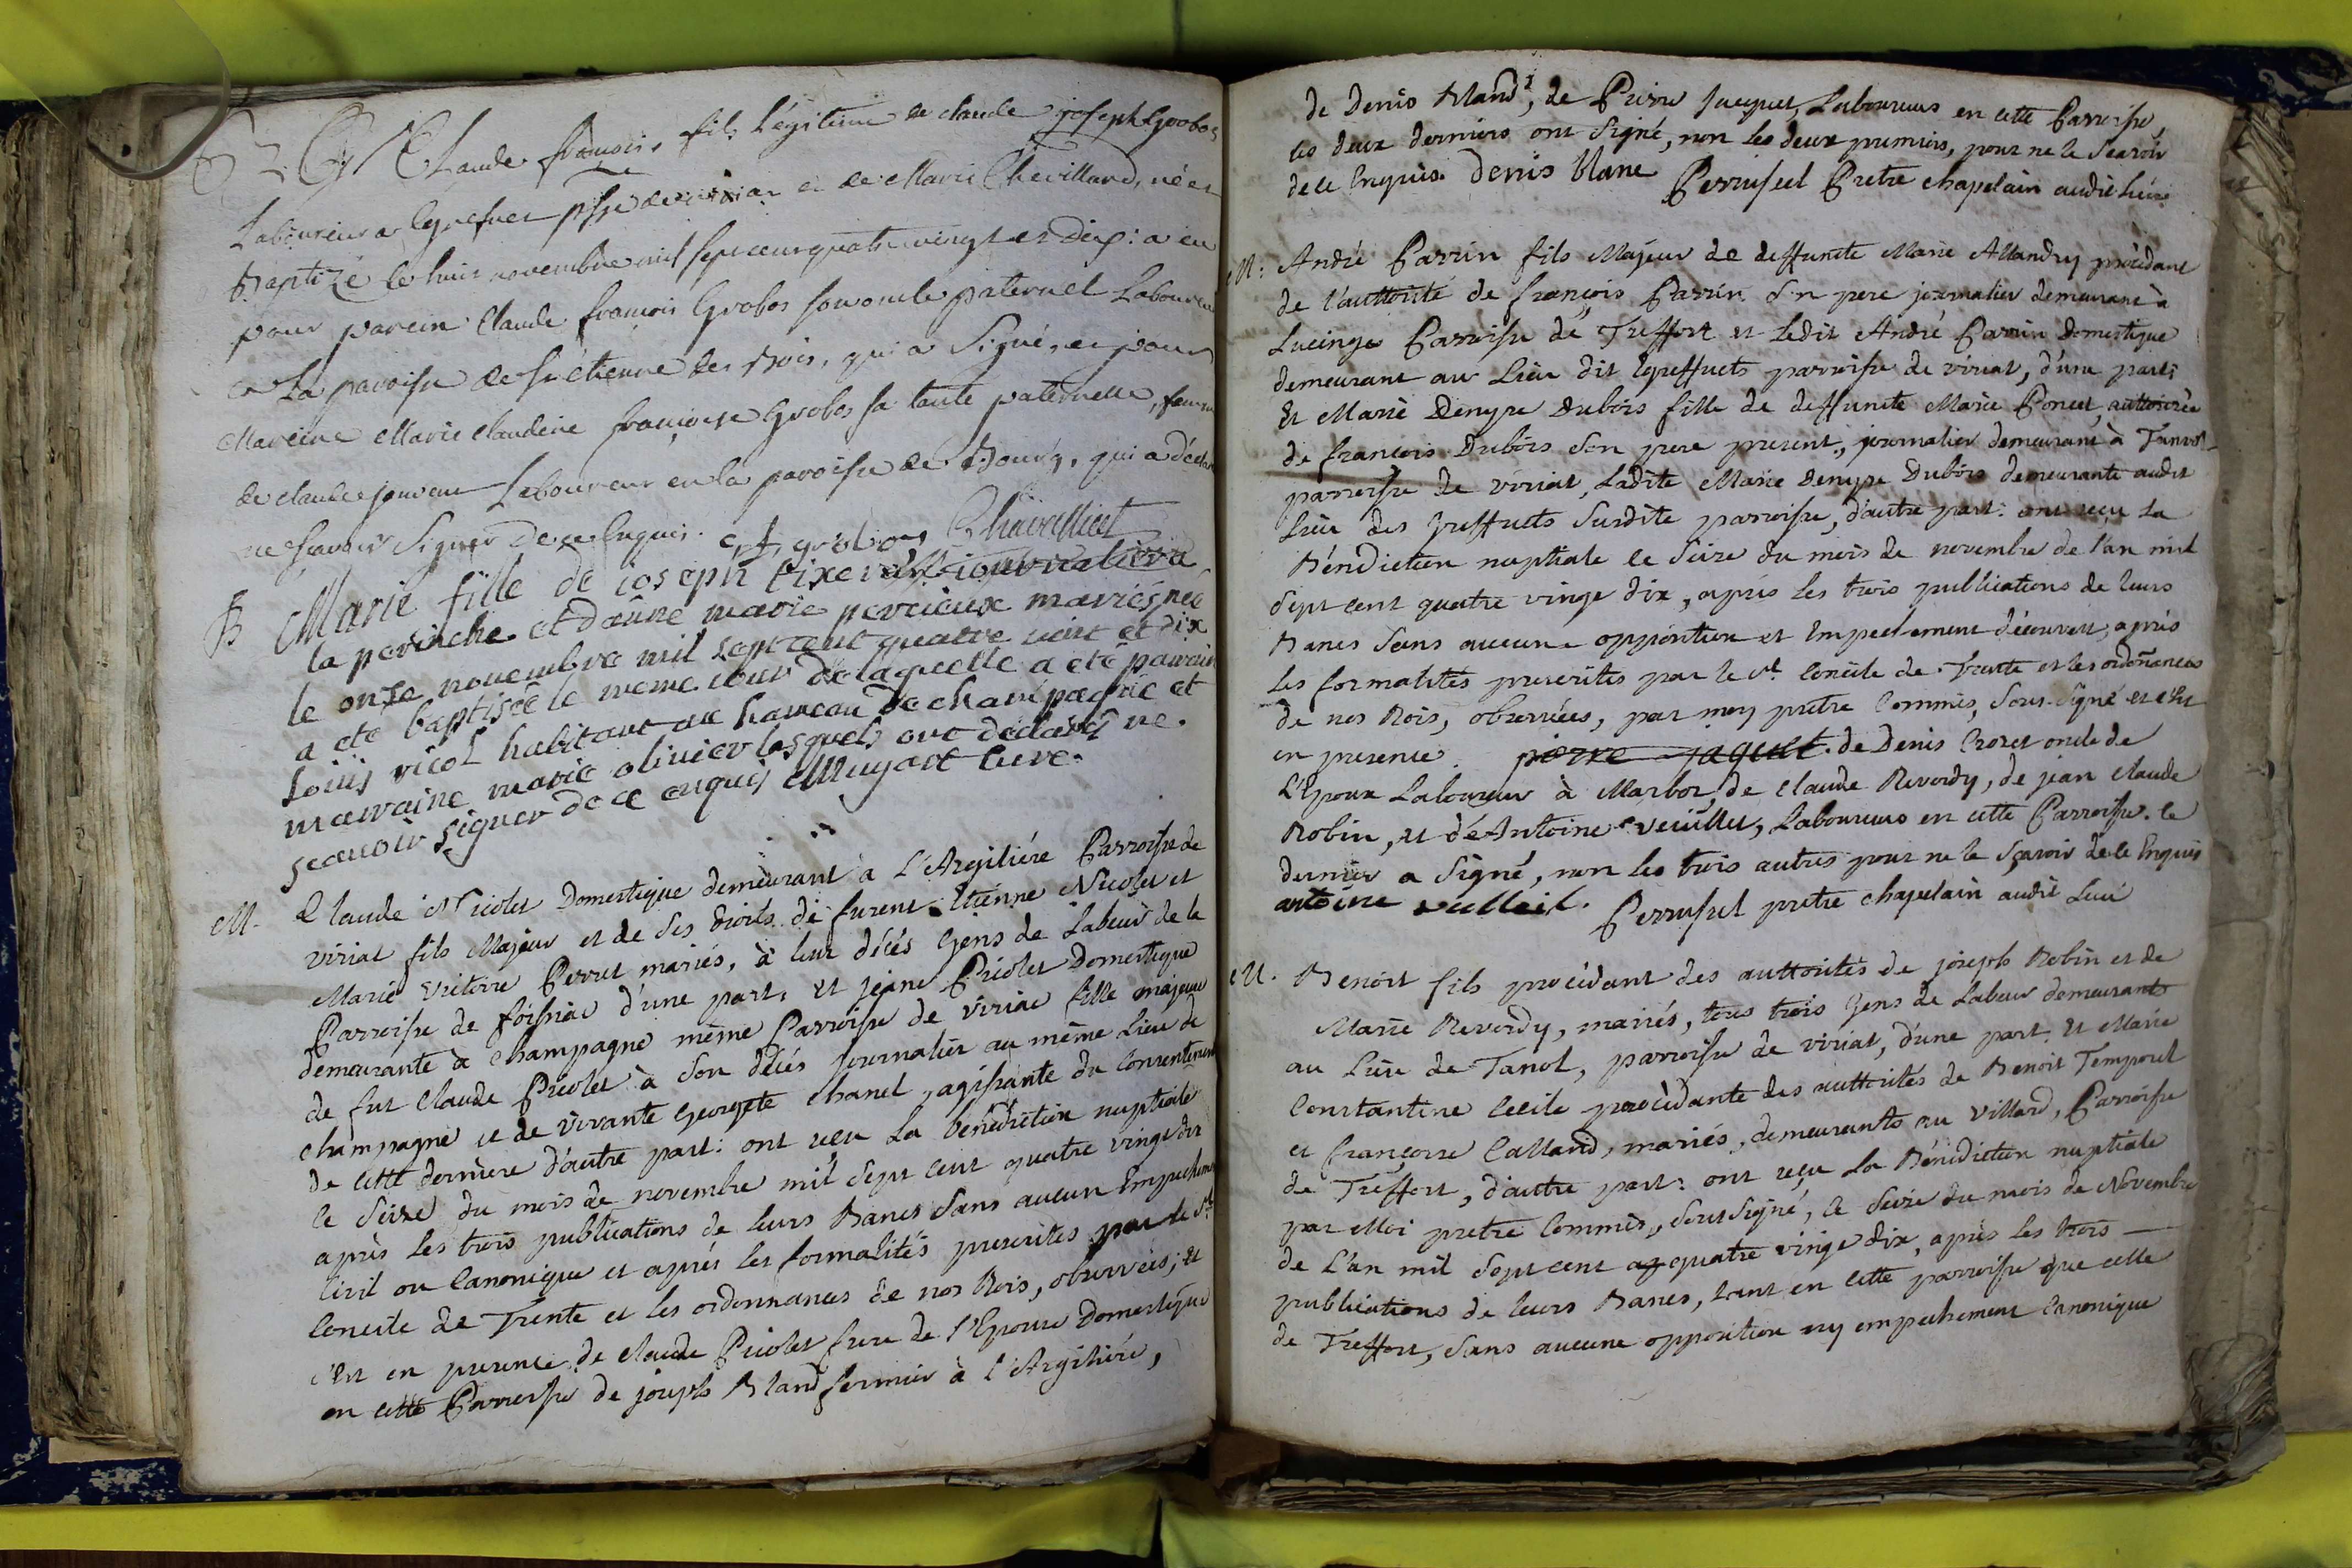 Claude françois fils Légitime de claude joseph Grobos
Laboureur a Greffuet psse de viriar et de Marie Chevillard, né et
Baptizé le huit novembre mil sept cent quatre vingt et dix: a eu
pour parein Claude françois Grobos son oncle paternel Laboureur
en La paroisse de st étienne des Bois, qui a Signé, et pour
Mareine Marie Claudine françoise Grobos sa tante paternelle, femme
de claude jouvent Laboureur en la paroisse de Bourg, qui a déclaré
ne scavoir Signer De ce Enquis. c f grobos
B Marie fille de joseph journalier a
la perinche et d'anne marie perrieux mariés, née
le onze novembre mil sept cent quatre vint et dix
a eté baptisée le meme jour de laquelle a eté parain
Loüis nicol habitant au hameau de champagne et
maraine marie olivier lesquels ont declarés ne
scavoir signer de ce enquis Mugart Curé.
M. Claude Nicolet Domestique demeurant à L'Argiliére Parroisse de
viriat fils Majeur et de ses droits de furent Etienne Nicolet et
Marie victoire Perret mariés, à leur décés Gens de Labeur de la
Parroisse de foissiac d'une part, et jeanne Picolet Domestique
demeurante à Champagne même Parroisse de viriat fille majeure
de fut Claude Picolet à son décés journalier au même Lieu de
champagne et de vivante Georgete Chanel, agissante du Consentement
de cette derniere d'autre part: ont reçu La bénédiction nuptiale
le Seize du mois de novembre mil Sept cent quatre vingt dix
après les trois publications de leurs Bancs Sans aucun Empechement
Civil ou Canonique et après les formalités prescrites par le St
Concile de Trente et les ordonnances de nos Rois, observées; et
c'est en presence de claude Picolet frere de l'Epouse Domestique
en cette Parroisse de joseph Bland fermier à l'Argiliére,
de Denis Bland, de Pierre Jacquet, Laboureurs en cette Parroisse,
les deux derniers ont Signé, non les deux premiers, pour ne le Scavoir
de ce Enquis. Denis blanc Perrusel Pretre chapelain audit lieu
M: André Parrin fils Majeur de deffunte Marie Allandry procédant
de l'authorité de françois Parrin Son pere journalier demeurant à
Lucinge Parroisse de Treffort et ledit André Parrin Domestique
demeurant au Lieu dit Greffuets parroisse de viriat, d'une part;
Et Marie Denyse Dubois fille de deffunte Marie Poncet, authorisée
de francois Dubois Son pere present, journalier demeurant à Tanvol
parroisse de viriat, Ladite Marie Denyse Dubois demeurante audit
Lieu des Greffuets Susdite parroisse, d'autre part: ont reçu La
Bénédiction nuptiale le Seize du mois de novembre de l'an mil
Sept cent quatre vingt dix, après les trois publications de leurs
Bancs Sans aucune opposition et Empechement découvert, après
les formalités prescrites par le st Concile de Trente et les ordonnances
de nos Rois, observées, par moy prêtre Commis, Sous-Signé et c'est
en presence. pierre jaquet. de Denis Crozet oncle de
L'Epoux Laboureur à Marboz, de Claude Reverdy, de jean Claude
Robin, et d'Antoine veuillet, Laboureurs en cette Parroisse. le
dernier a Signé, non les trois autres pour ne le Sçavoir de ce Enquis
antoine Perrusel pretre chapelain audit Lieu
M. Benoit fils procédant des authorités de joseph Robin et de
Marie Reverdy, mariés, tous trois Gens de Labeur demeurants
au Lieu de Tanol, parroisse de viriat, d'une part. Et Marie
Constantine Cecile procédante des authorités de Benoit Temporel
et françoise Calland, mariés, demeurants au Villard, Parroisse
de Treffort, d'autre part: ont reçu La Bénédiction nuptiale
par Moi pretre Commis, Sous Signé, le Seize du mois de Novembre
de L'an mil Sept cent quatre vingt dix, après les trois
publications de leurs Bancs, tant en cette parroisse que celle
de Treffort, Sans aucune opposition ny empechement Canonique